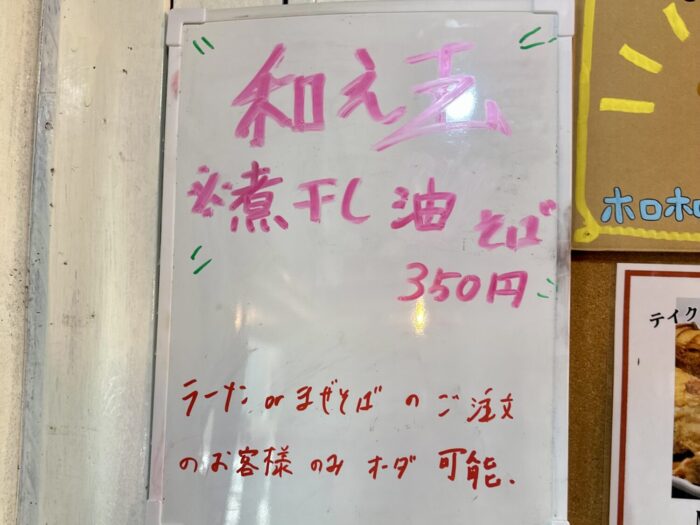 和え玉
※煮干し油そば
350円
ラーメン or まぜそば のご注文
のお客様 のみ オーダ 可能.
ホロホロ
テイク